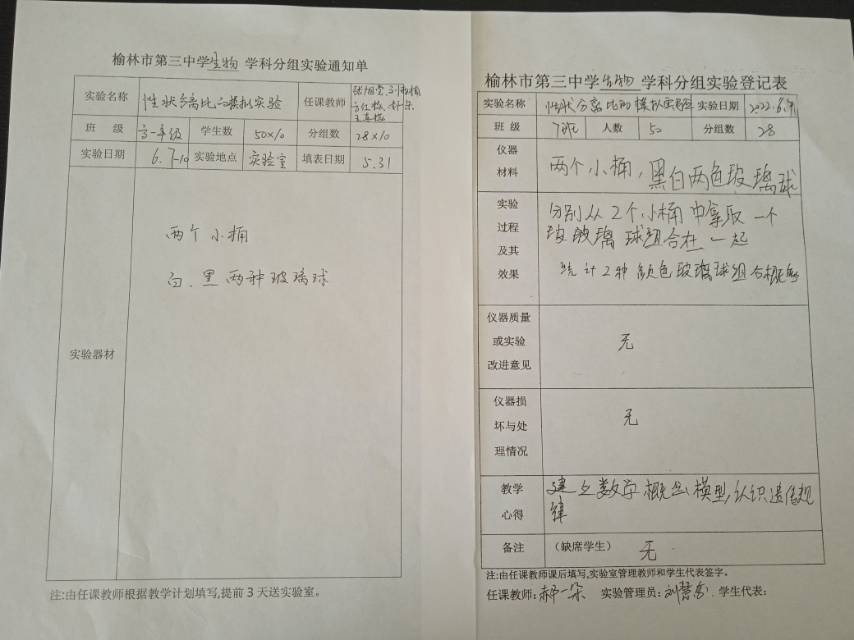 榆林市第三中学生物 学科分组实验通知单
实验名称 性状分离比的模拟实验 任课教师
班 级 高一年级 学生数 50×10 分组数 28×10
实验日期 6.7-10 实验地点 实验室 填表日期 5.31
实验器材
两个小桶
白、黑两种玻璃球
注:由任课教师根据教学计划填写,提前3天送实验室。
榆林市第三中学生物 学科分组实验登记表
实验名称 性状分离比的模拟实验 实验日期 2022.6.9
班 级 7班 人数 50 分组数 28
仪器
材料
两个小桶,黑白两色玻璃球
实验
过程
及其
效果
分别从2个小桶中拿取一个
玻玻璃球组合在一起
统计2种颜色玻璃球组合概率
仪器质量
或实验
改进意见
无
仪器损
坏与处
理情况
无
教学
心得
建立数学概念模型,认识遗传规
律
备注 (缺席学生) 无
注:由任课教师课后填写,实验室管理教师和学生代表签字。
任课教师:郝一朵 实验管理员: 学生代表: